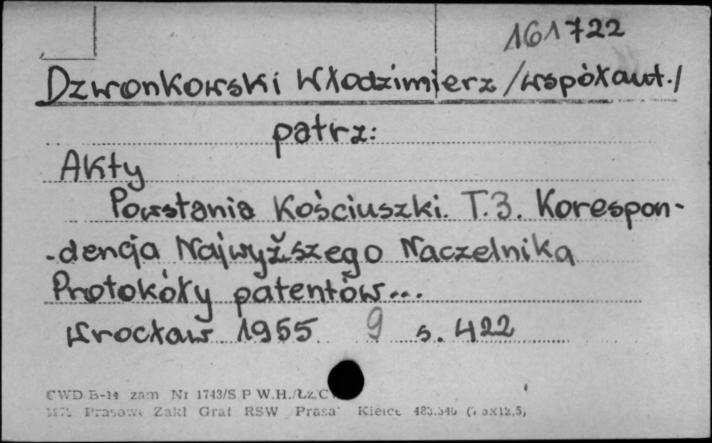 161722
Dzwonkowski Włodzimierz /współaut./
patrz:
Akty
Powstania Kościuszki. T.3. Korespon-
-dencja Najwyższego Naczelnika
Protokóły patentów...
Wrocław 1955 9 s. 422
CWD B-14 zam Nr 1743/S P W.H./Łz.C
Prasowe Zakł Graf RSW Prasa Kielce